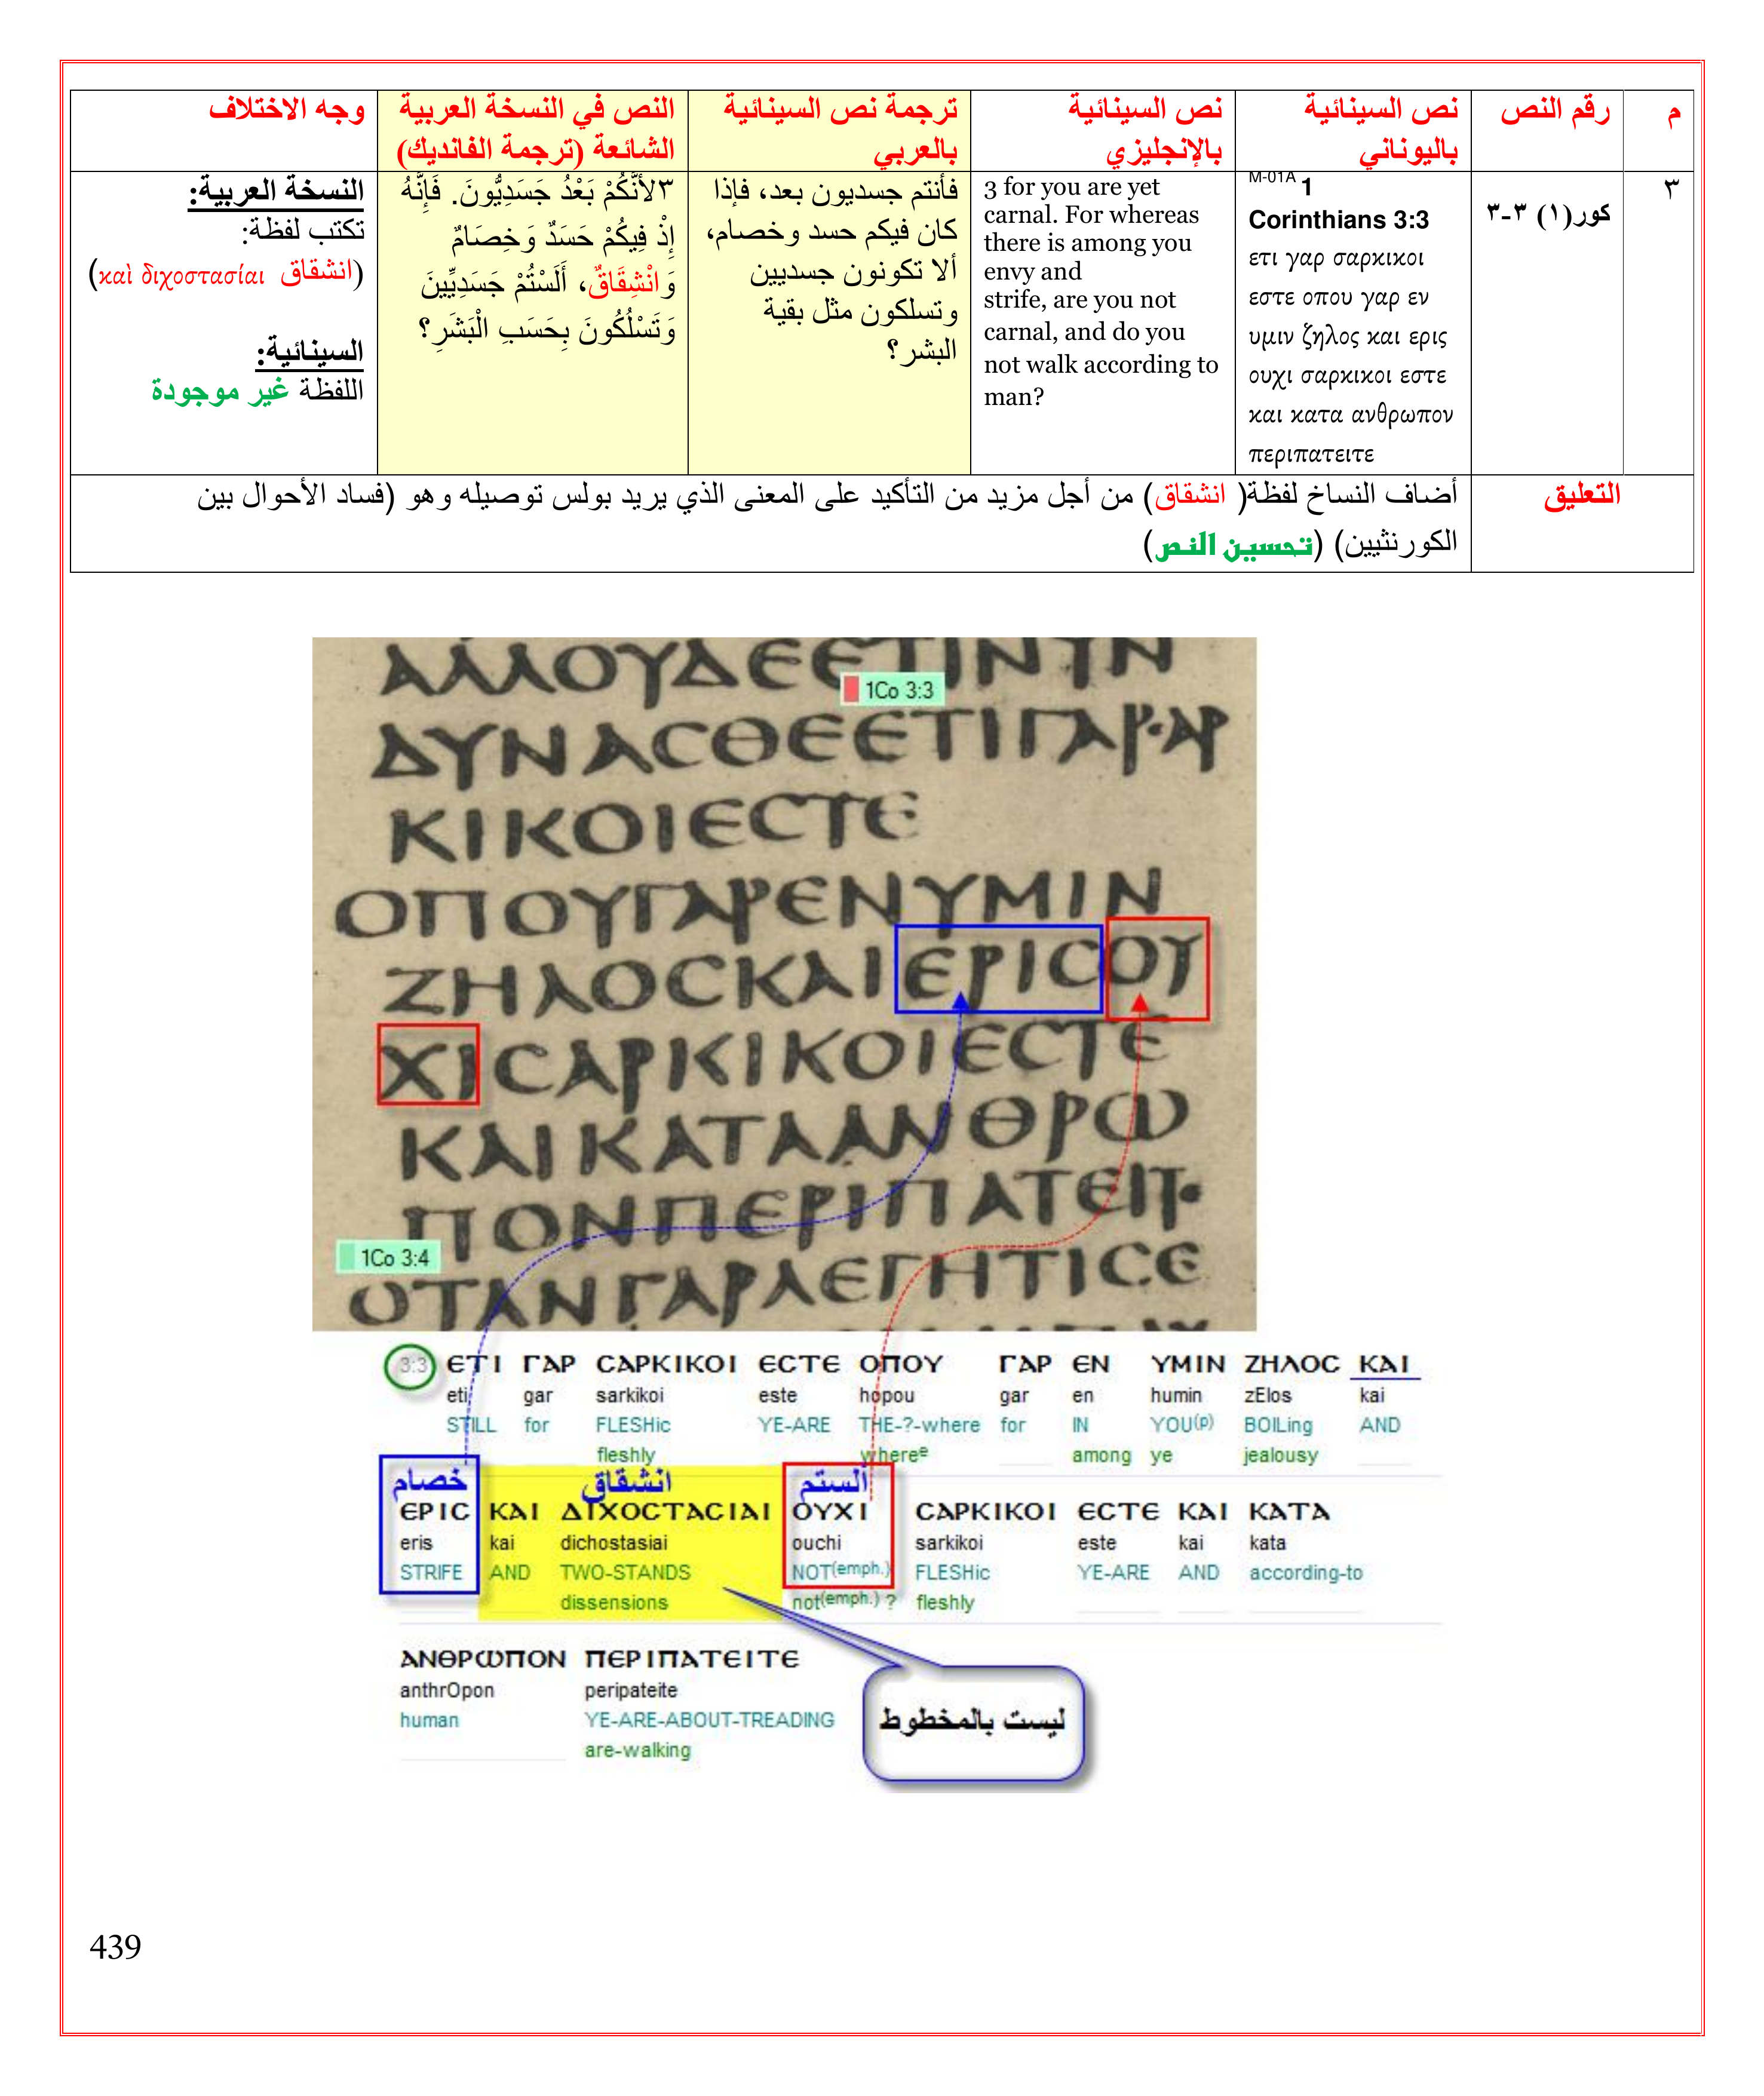 م
رقم النص
نص السينائية
باليوناني
نص السينائية
بالإنجليزي
ترجمة نص السينائية
بالعربي
النص في النسخة العربية
الشائعة (ترجمة الفانديك)
وجه الاختلاف
٣
كور(١) ٣-٣
M-01A 1
Corinthians 3:3
ετι γαρ σαρκικοι
εστε οπου γαρ εν
υμιν ζηλος και ερις
ουχι σαρκικοι εστε
και κατα ανθρωπον
περιπατειτε
3 for you are yet
carnal. For whereas
there is among you
envy and
strife, are you not
carnal, and do you
not walk according to
man?
فأنتم جسديون بعد، فإذا
كان فيكم حسد وخصام،
ألا تكونون جسديين
وتسلكون مثل بقية
البشر؟
٣لأَنَّكُمْ بَعْدُ جَسَدِيُّونَ. فَإِنَّهُ
إِذْ فِيكُمْ حَسَدٌ وَخِصَامٌ
وَانْشِقَاقٌ، أَلَسْتُمْ جَسَدِيِّينَ
وَتَسْلُكُونَ بِحَسَبِ الْبَشَرِ؟
النسخة العربية:
تكتب لفظة:
(انشقاق καὶ διχοστασίαι)
السينائية:
اللفظة غير موجودة
التعليق
أضاف النساخ لفظة( انشقاق) من أجل مزيد من التأكيد على المعنى الذي يريد بولس توصيله وهو (فساد الأحوال بين
الكورنثيين) (تحسين النص)
ΑΛΛΟΥΔΕΕΤΙΝΥΝ
1Co 3:3
ΔΥΝΑCΘΕΕΤΙΓΑΡCΑΡ
ΚΙΚΟΙΕCΤΕ
ΟΠΟΥΓΑΡΕΝΥΜΙΝ
ΖΗΛΟCΚΑΙΕΡΙCΟΥ
ΧΙCΑΡΚΙΚΟΙΕCΤΕ
ΚΑΙΚΑΤΑΑΝΘΡΩ
ΠΟΝΠΕΡΙΠΑΤΕΙΤΕ
1Co 3:4
ΟΤΑΝΓΑΡΛΕΓΗΤΙCΕ
3:3 ΕΤΙ ΓΑΡ CΑΡΚΙΚΟΙ ΕCΤΕ ΟΠΟΥ ΓΑΡ ΕΝ ΥΜΙΝ ΖΗΛΟC ΚΑΙ
eti gar sarkikoi este hopou gar en humin zElos kai
STILL for FLESHic YE-ARE THE-?-where for IN YOU(p) BOILing AND
fleshly whereᵉ among ye jealousy
خصام انشقاق ألستم
ΕΡΙC ΚΑΙ ΔΙΧΟCΤΑCΙΑΙ ΟΥΧΙ CΑΡΚΙΚΟΙ ΕCΤΕ ΚΑΙ ΚΑΤΑ
eris kai dichostasiai ouchi sarkikoi este kai kata
STRIFE AND TWO-STANDS NOT(emph.) FLESHic YE-ARE AND according-to
dissensions not(emph.) ? fleshly
ΑΝΘΡΩΠΟΝ ΠΕΡΙΠΑΤΕΙΤΕ
anthrOpon peripateite
human YE-ARE-ABOUT-TREADING
are-walking
ليست بالمخطوط
439